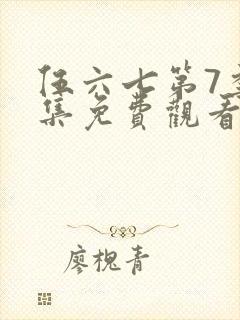 伍六七第7
集免費觀看
廖槐青